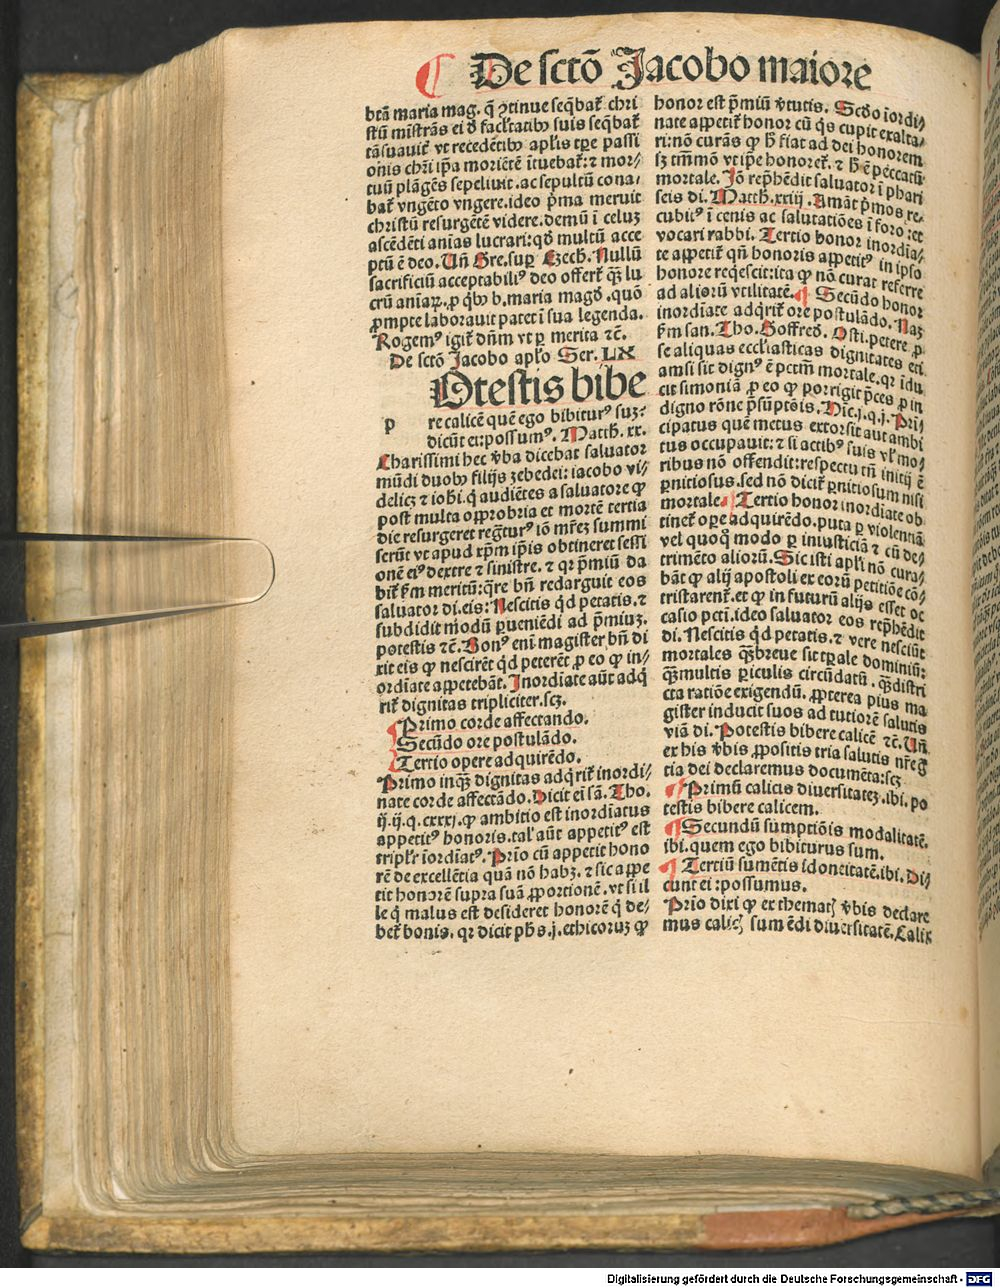 De sctō Jacobo maiore
btā maria mag. q̄ ꝯtinue seq̄bat̄ chri
stū mīstrās ei ꝺ facl̄tatibꝰ suis seq̄bat̄
tā suauit̄ vt recedētibꝰ apl̄is tꝑe passi
onis chr̄i ip̄a moriētē ītuebat̄: ⁊ mor⸗
tuū plāgēs sepeliuit. ac sepultū cona⸗
bat̄ vngēto vngere. ideo p̄ma meruit
christū resurgētē videre. demū ī celuʒ
ascēdēti aīas lucrari: qꝺ multū acce
ptū ē deo. Uñ Gre. suꝑ Ezech. Nullū
sacrificiū acceptabiliꝰ deo offert̄ qʒ̄ lu
crū aīarꝝ. ꝓ qͥbꝰ b. maria magꝺ. quō
ꝓmpte laborauit patet ī sua legenda.
Rogemꝰ igit̄ dñm vt ꝑ merita ⁊c̄.
De sctō Jacobo apl̄o Ser. LIX
Otestis bibe
p re calicē quē ego bibiturꝰ suʒ:
dicūt ei: possumꝰ. Matth. xx.
Charissimi hec v̄ba dicebat saluator
mūdi duobꝰ filijs zebedei: iacobo vi⸗
delicʒ ⁊ ioh̄i. q̇ audiētes a saluatore ꝙ
post multa opprobria et mortē tertia
die resurgeret reg̃turꝰ iō mr̄eʒ summi
serūt vt apud xp̄m ip̄is obtineret sessi
onē eiꝰ dextre ⁊ sinistre. ⁊ qꝛ p̄miū da
bit̄ ẜm meritū: q̄re bñ redarguit eos
saluator di. eis: Nescitis qͥd petatis. ⁊
subdidit modū ꝑueniēdi ad p̄miuʒ.
potestis ⁊c̄. Bonꝰ eni magister bñ di
xit eis ꝙ nescirēt qͥd peterēt ꝓ eo ꝙ in⸗
ordīate appetebāt. Inordīate aūt adq̇
rit̄ dignitas tripliciter. scʒ.
Primo corde affectando.
Secūdo ore postulādo.
Tertio opere adquirēdo.
Primo inqʒ̄ dignitas adq̇rit̄ inordi⸗
nate corde affectādo. Dicit ei sā. Tho.
ij. ij. q. cxxxj. ꝙ ambitio est inordīatus
appetitꝰ honoris. tal̄ aūt appetitꝰ est
tripl̄r īordīatꝰ. Prīo cū appetit hono
rē de excellētia quā nō habʒ. ⁊ sic appe
tit honorē supra suā ꝓportionē. vt si il
le q̇ malus est desideret honorē q̇ de⸗
bet̄ bonis. qꝛ dicit ph̄s. j. ethicoruʒ ꝙ
honor est p̄miū v̄tutis. Scꝺo īordi⸗
nate appetit̄ honor cū qͥs cupit exalta⸗
ri: nō curās ꝙ h̄ fiat ad dei honorem
sʒ tm̄mō vt ip̄e honoret̄. ⁊ h̄ ē peccatū
mortale. Jō rep̄hēdit saluator ī phari
seis di. Matth. xxiij. Amāt p̄mos re⸗
cubitꝰ ī cenis ac salutatiōes ī foro: et
vocari rabbi. Tertio honor inordīa⸗
te appetit̄ qñ honoris appetitꝰ in ipso
honore reqͥescit: ita ꝙ nō curat referre
ad aliorū vtilitatē. Secūdo honor
inordīate adqͥrit̄ ore postulādo. Naʒ
ẜm san. Tho. Goffreꝺ. Osti. petere ꝓ
se aliquas eccl̄iasticas dignitates eti
amsi sit dignꝰ ē pctm̄ mortale. qꝛ īdu
cit simoniā ꝓ eo ꝙ porrigit p̄ces ꝓ in
digno rōne p̄sūptōis. Dic. j. q. j. Pri⸗
cipatus quē metus extorsit aut ambi
tus occupauit: ⁊ si actibꝰ suis vl̄ mo⸗
ribus nō offendit: respectu tñ initij ē
ꝑnitiosus. sed nō dicit̄ ꝑnitiosum nisi
mortale. Tertio honor inordīate ob
tinet̄ oꝑe adquirēdo. puta ꝑ violentiā
vel quoqͦ modo ꝑ iniusticiā ⁊ cū de⸗
trimēto aliorū. Sic isti apl̄i nō cura⸗
bāt ꝙ alij apostoli ex eorū petitiōe cō⸗
tristarent̄. et ꝙ in futurū alijs esset oc
casio pcti. ideo saluator eos rep̄hēdit
di. Nescitis qͥd petatis. ⁊ vere nesciūt
mortales qʒ̄ breue sit tꝑale dominiū:
qʒ̄ multis ꝑiculis circūdatū. qʒ̄ distri
cta ratiōe exigendū. ꝓpterea pius ma
gister inducit suos ad tutiorē salutis
viā di. Potestis bibere calicē ⁊c̄. Uñ
ex his v̄bis ꝓpositis tria salutis nr̄e g̃
tia dei declaremus documēta: scʒ
Primū calicis diuersitateʒ. ibi. po
testis bibere calicem.
Secundū sumptiōis modalitatē.
ibi. quem ego bibiturus sum.
Tertiū sumētis idoneitatē. ibi. Di⸗
cunt ei: possumus.
Prīo dixi ꝙ ex thematꝭ v̄bis declare
mus calicꝭ sumēdi diuersitatē. Calix
Digitalisierung gefördert durch die Deutsche Forschungsgemeinschaft - DFG